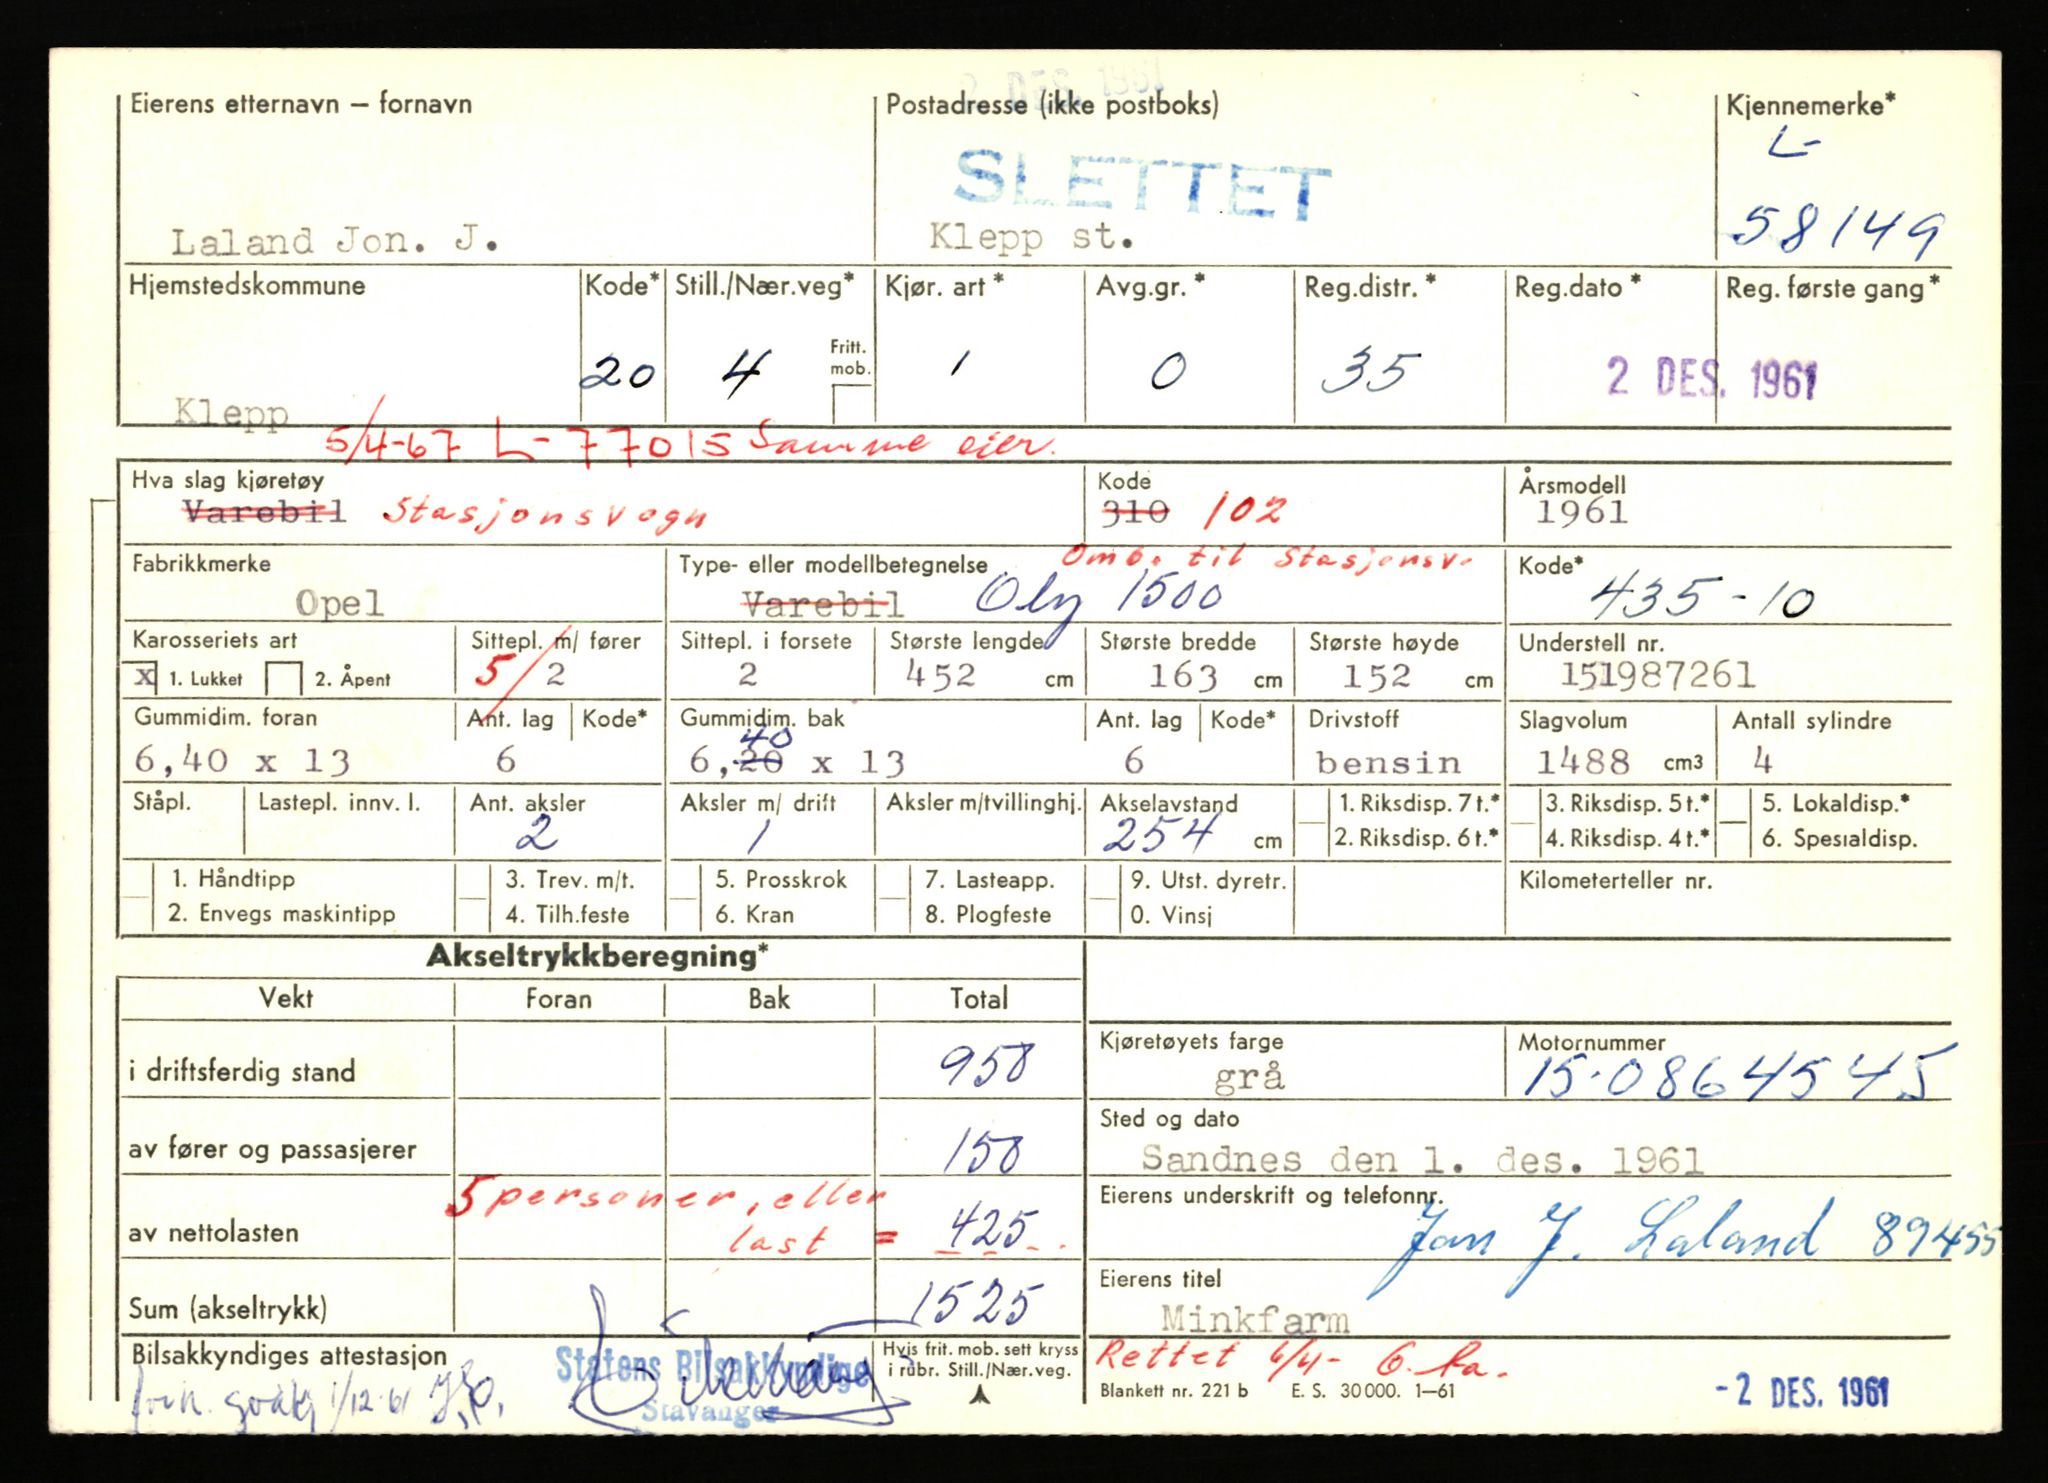 2 DES. 1961
Eierens etternavn – fornavn Postadresse (ikke postboks) Kjennemerke*
SLETTET L-
Laland Jon. J. Klepp st. 58149
Hjemstedskommune Kode* Still./Nær.veg* Kjør. art* Avg.gr.* Reg.distr.* Reg.dato* Reg. første gang*
Fritt. mob.
Klepp 20 4 1 0 35 2 DES. 1961
5/4-67 L-77015 Samme eier.
Hva slag kjøretøy Kode Årsmodell
Varebil Stasjonsvogn 310 102 1961
Omb. til Stasjonsv.
Fabrikkmerke Type- eller modellbetegnelse Kode*
Opel Varebil Oly 1500 435-10
Karosseriets art Sittepl. m/ fører Sittepl. i forsete Største lengde Største bredde Største høyde Understell nr.
x 1. Lukket 2. Åpent 5/2 2 452 cm 163 cm 152 cm 151987261
Gummidim. foran Ant. lag Kode* Gummidim. bak Ant. lag Kode* Drivstoff Slagvolum Antall sylindre
40
6,40 x 13 6 6,20 x 13 6 bensin 1488 cm3 4
Ståpl. Lastepl. innv. l. Ant. aksler Aksler m/ drift Aksler m/tvillinghj. Akselavstand 1. Riksdisp. 7 t.* 3. Riksdisp. 5 t.* 5. Lokaldisp.*
2 1 254 cm 2. Riksdisp. 6 t.* 4. Riksdisp. 4 t.* 6. Spesialdisp.
1. Håndtipp 3. Trev. m/t. 5. Prosskrok 7. Lasteapp. 9. Utst. dyretr. Kilometerteller nr.
2. Envegs maskintipp 4. Tilh.feste 6. Kran 8. Plogfeste 0. Vinsj
Akseltrykkberegning*
Vekt Foran Bak Total
Kjøretøyets farge Motornummer
i driftsferdig stand 950 grå 15-0864545
Sted og dato
av fører og passasjerer 150 Sandnes den 1. des. 1961
5 personer, eller Eierens underskrift og telefonnr.
av nettolasten last = 425 Jon J. Laland 89455
Eierens titel
Sum (akseltrykk) 1525 Minkfarm
Bilsakkyndiges attestasjon Statens Bilsakkyndige Hvis frit. mob. sett kryss Rettet 6/4-
i rubr. Still./Nær.veg.
1/12-61 Stavanger Blankett nr. 221 b E. S. 30000. 1–61 -2 DES. 1961